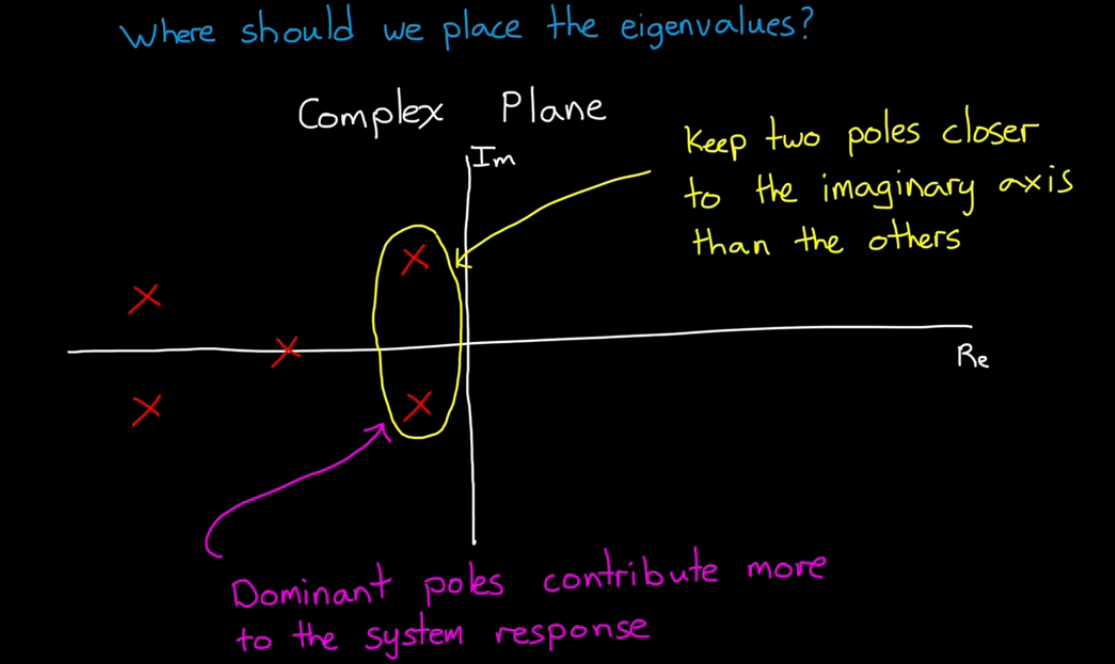 Where should we place the eigenvalues?
Complex Plane
Im
Keep two poles closer
to the imaginary axis
than the others
Re
Dominant poles contribute more
to the system response